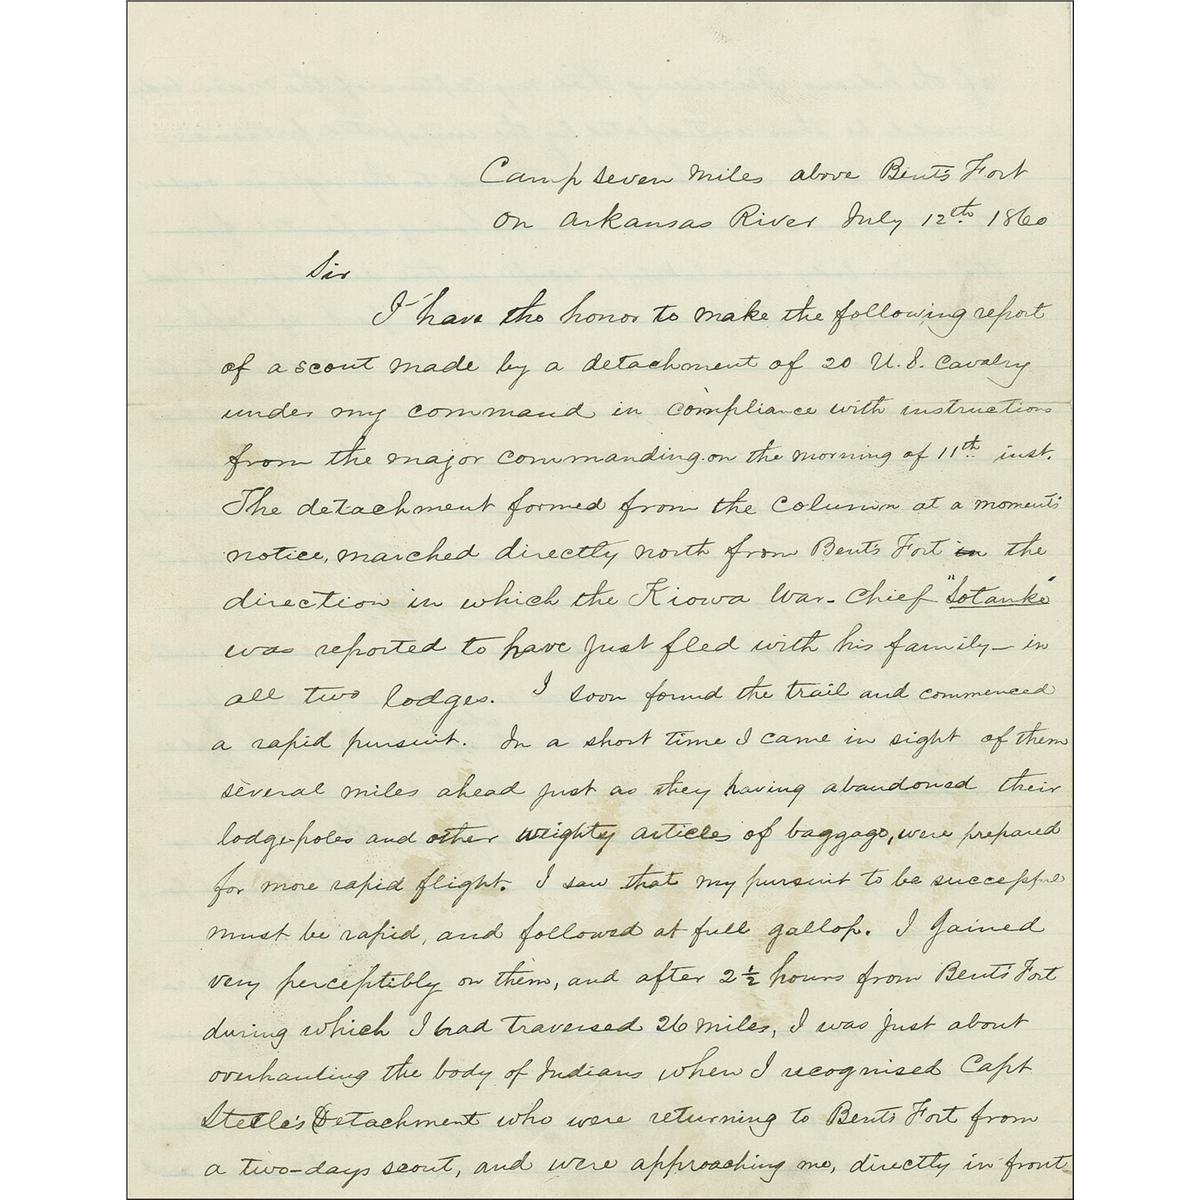 Camp seven miles above Bent's Fort
On Arkansas River July 12th 1860
Sir
I have the honor to make the following report
of a scout made by a detachment of 20 U.S. Cavalry
under my command in compliance with instructions
from the major commanding on the morning of 11th inst.
The detachment formed from the column at a moments
notice, marched directly north from Bents Fort in the
direction in which the Kiowa War-Chief "Sotanke"
was reported to have just fled with his family - in
all two lodges. I soon found the trail and commenced
a rapid pursuit. In a short time I came in sight of them
several miles ahead just as they having abandoned their
lodge-poles and other weighty articles of baggage, were prepared
for more rapid flight. I saw that my pursuit to be successful
must be rapid, and followed at full gallop. I gained
very perceptibly on them, and after 2½ hours from Bents Fort
during which I had traversed 26 miles, I was just about
overhauling the body of Indians when I recognised Capt
Steele's Detachment who were returning to Bents Fort from
a two-days scout, and were approaching me, directly in front